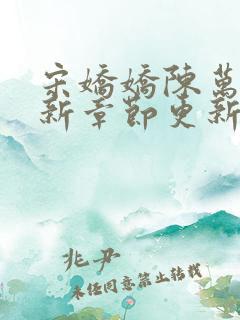 宋嬌嬌陳萬
新章節更新
兆尹
未经同意禁止转载